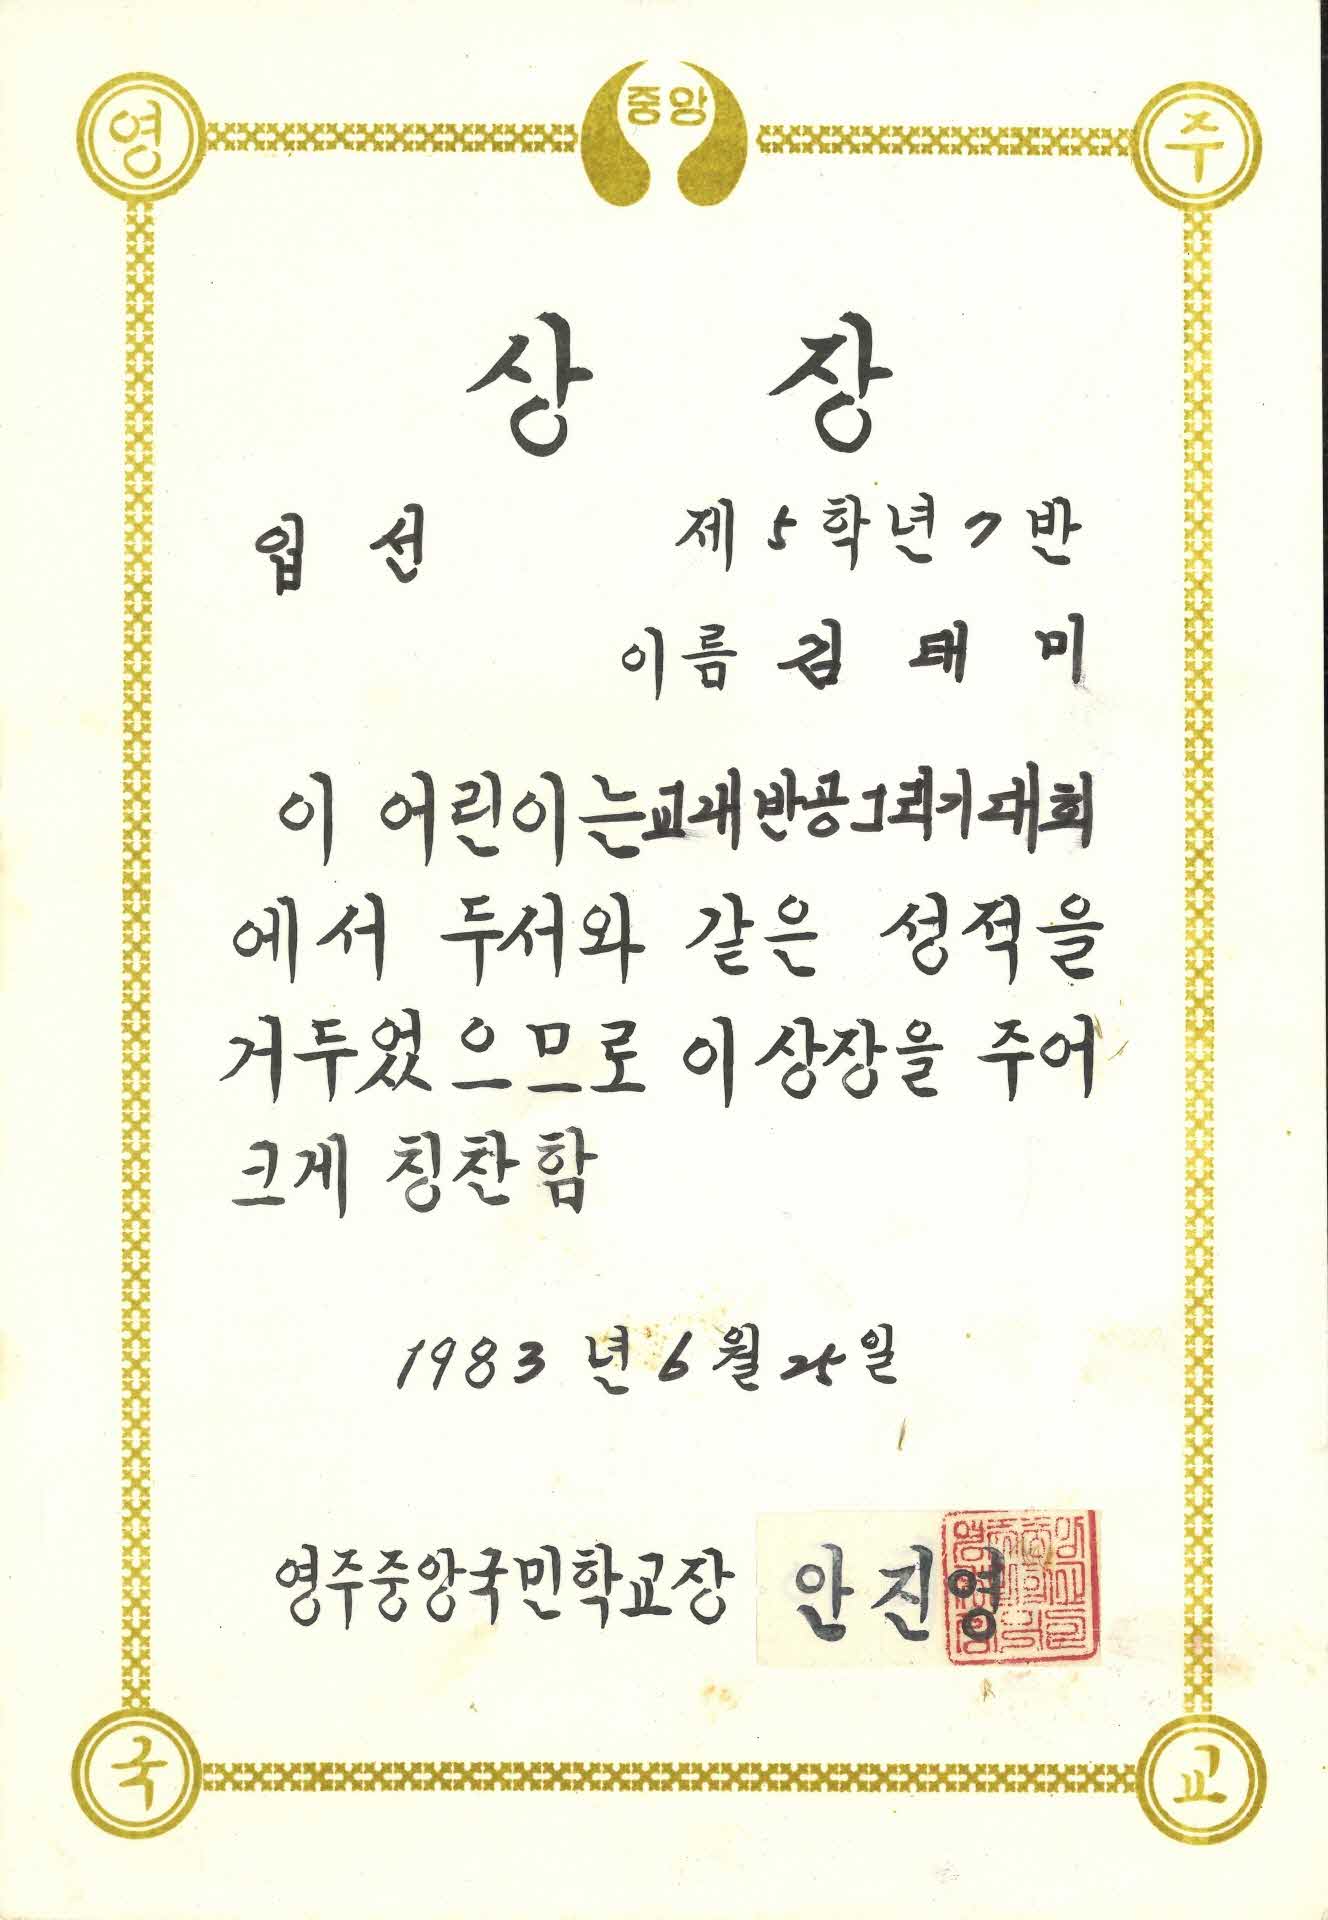 영 중앙 주
상 장
입 선 제 5 학년 7 반
이름 김 태 미
이 어린이는 교내 반공 그리기 대회
에서 두서와 같은 성적을
거두었으므로 이 상장을 주어
크게 칭찬함
1983 년 6 월 25 일
영주중앙국민학교장 안 진 영
국 교